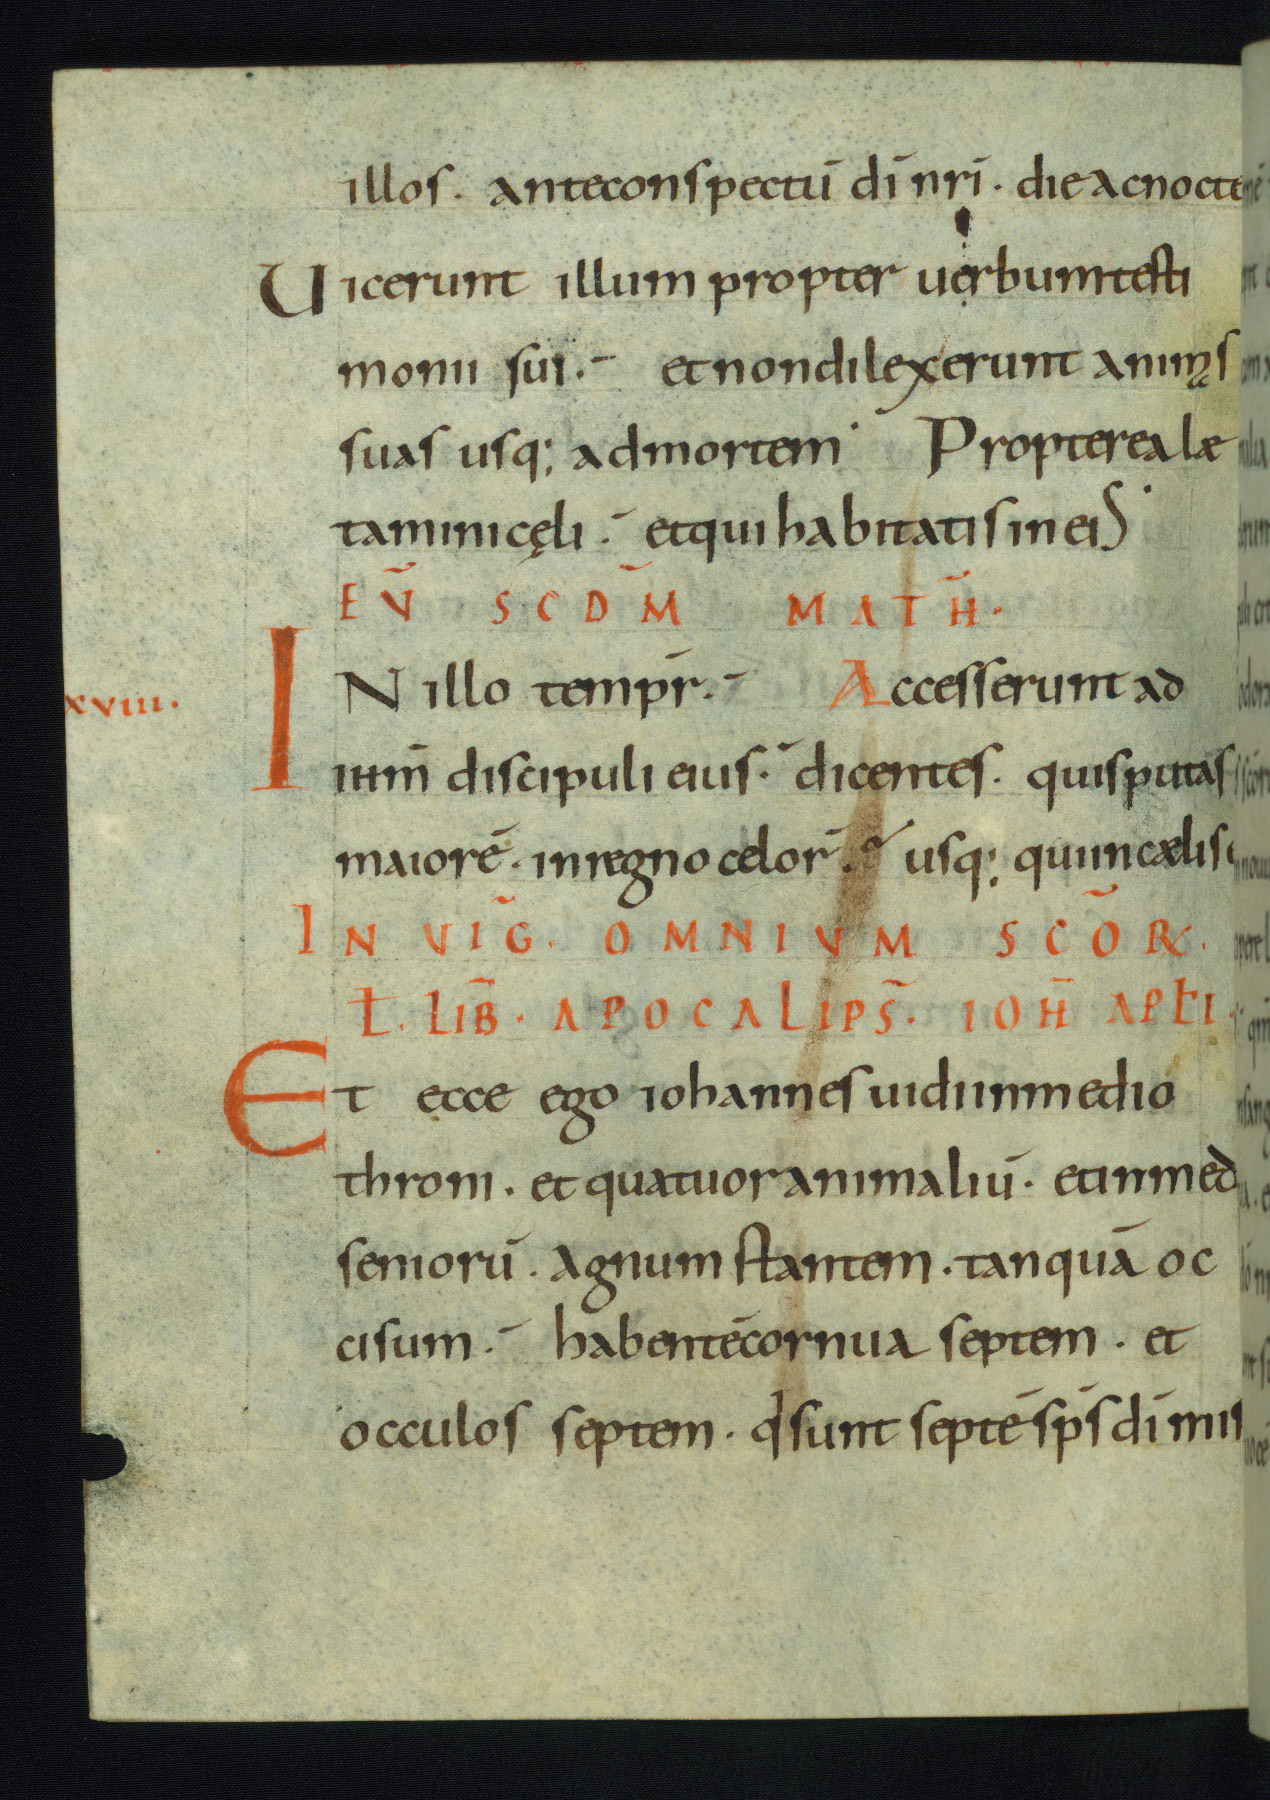 illos. anteconspectū dī nrī. die acnocte
Uicerunt illum propter uerbumtesti
monii sui. et nondilexerunt animęs
suas usq; admortem Propterea læ
tamini cęli. etqui habitatis in eis
EṼ SCDM̃ MATH̃.
xviii.
IN illo tempr̄. Accesserunt ad
discipuli eius. dicentes. quisputas
maiorē. inregno celor̄. usq; quiincælis
IN VIG̃. OMNIVM SCÕR.
Ł. LIB̃. APOCALIPS̃. IOH̄ APŁI.
Et ecce ego iohannes uidi inmedio
throni. et quatuor animaliū. etinmed
seniorū. Agnum stantem. tanquā oc
cisum. habentēcornua septem. et
occulos septem. qsunt septē sp̄s dī mis